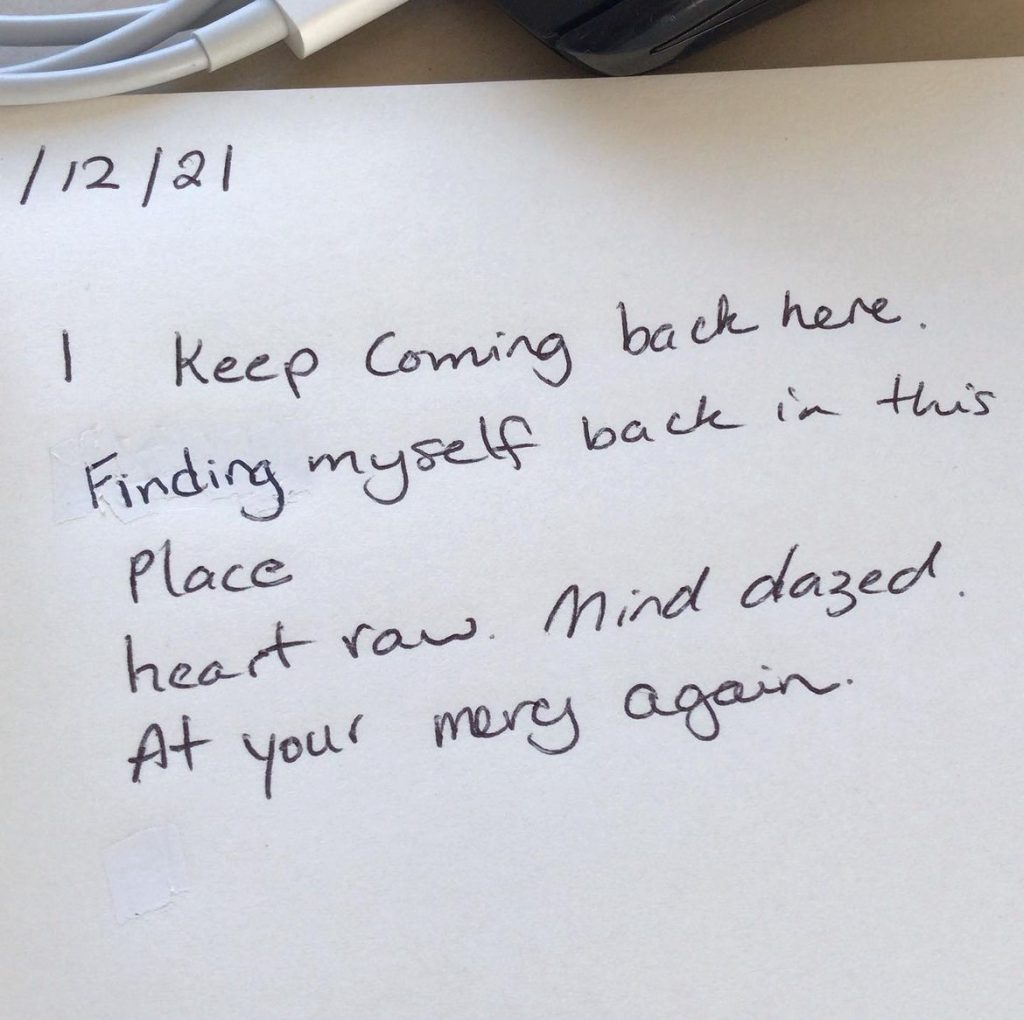 /12/21
I Keep Coming back here.
Finding myself back in this
Place
heart raw. Mind dazed.
At your mercy again.